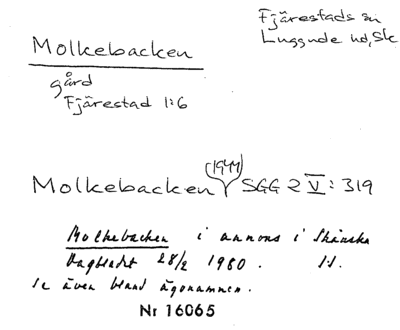 Molkebacken
Fjärestads sn
Luggude hd, Sk
gård
Fjärestad 1:6
(1944)
Molkebacken SGG 2 V: 319
Molkebacken i annons i Skånska
Dagbladet 28/2 1980.
se även bland ägonamnen.
Nr 16065